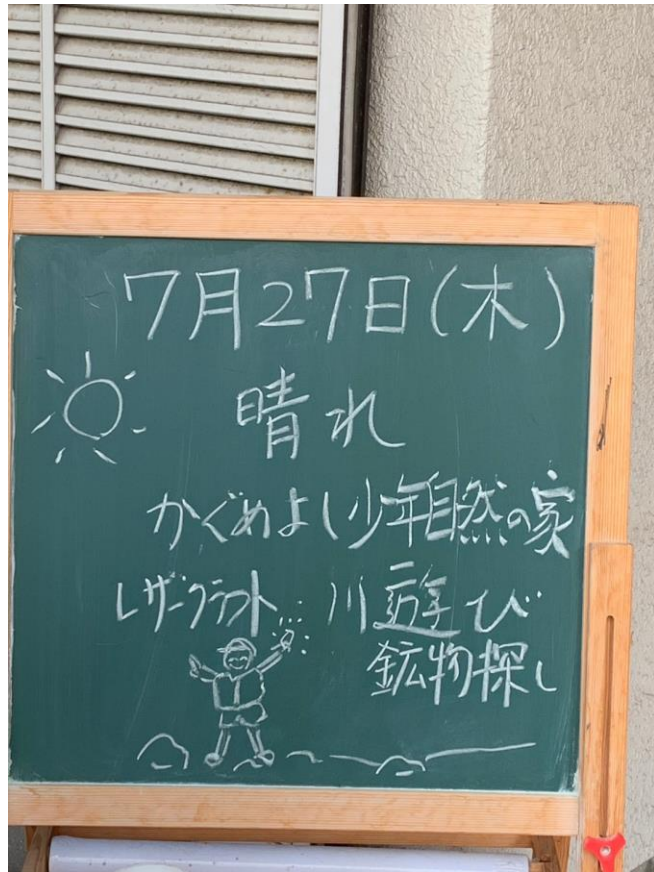 7月27日(木)
晴れ
かぐめよし少年自然の家
レザークラフト 川遊び
鉱物探し